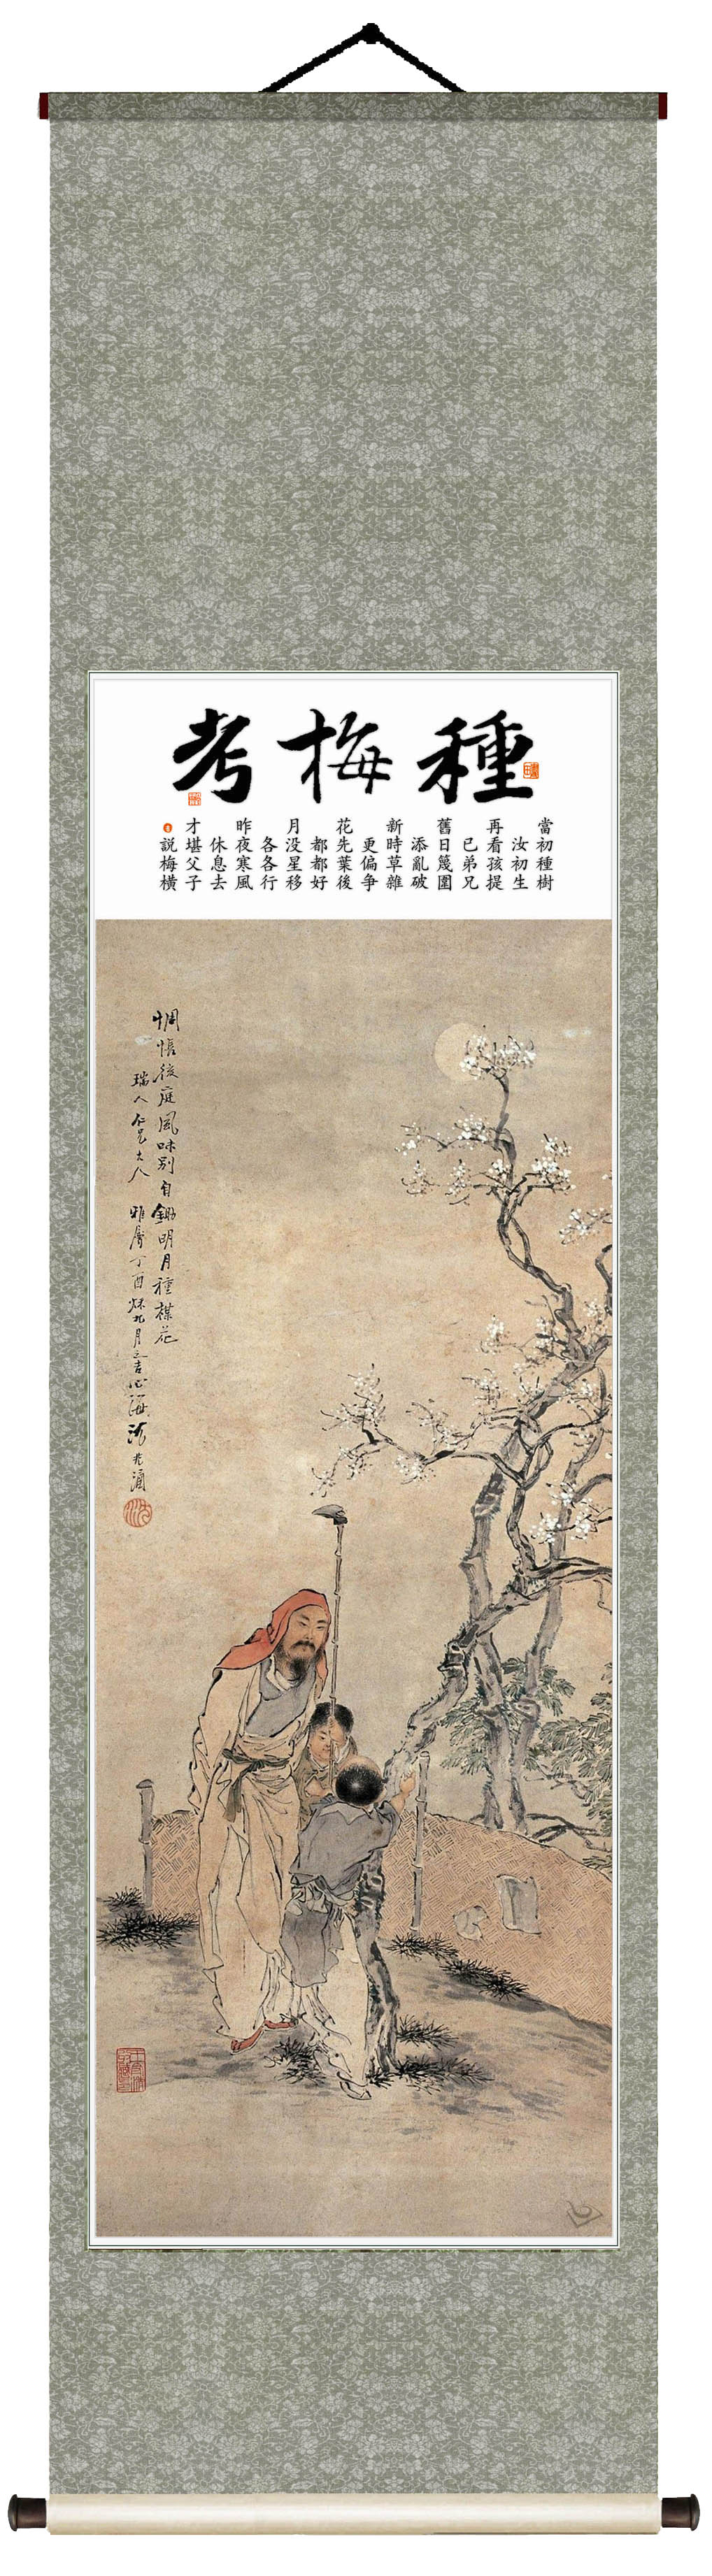 種梅考
當初種樹
汝初生
再看孩提
已弟兄
舊日篾圍
添亂破
新時草雜
更偏争
花先葉後
都都好
月没星移
各各行
昨夜寒風
休息去
才堪父子
説梅橫
惆悵後庭風味別自鋤明月種楳花
瑞人仁兄大人雅屬丁酉秌九月